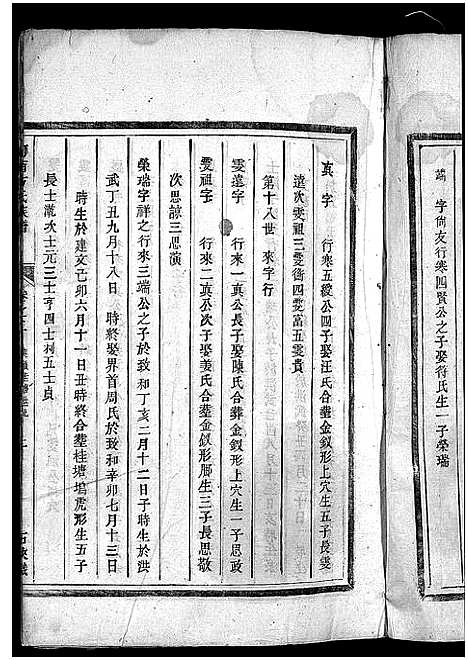 端 字尙友行寒四賢公之子娶符氏生一子榮瑞
真 字 行寒五綬公四子娶汪氏合塟金釵形上穴生五子長雯
遠次雯祖三雯衙四雯富五雯貴
第十八世 來字行
雯遠字 行來一真公長子娶陳氏合葬金釵形上穴生一子思政
雯祖字 行來二真公次子娶姜氏合塟金釵形脚生三子長思敬
次思諒三思演
榮瑞字祥之行來三端公之子於致和丁亥二月十二日子時生於洪
武丁丑九月十八日 時終娶界首周氏於致和辛卯七月十三日
時生於建文己卯六月十一日丑時終合塟桂塘塢虎形生五子
長士瀧次士元三士亨四士利五士貞